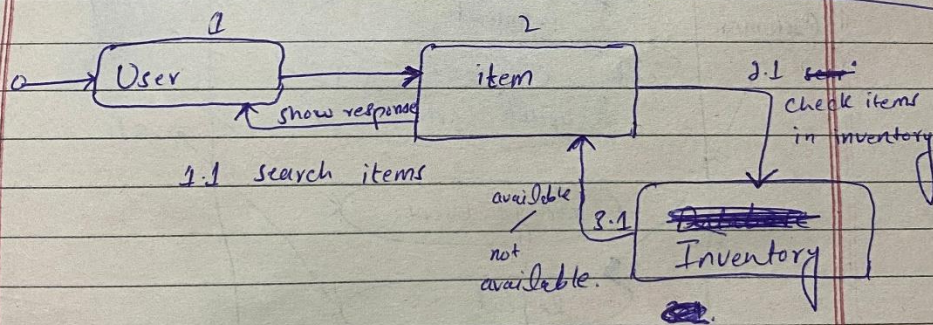 1
2
User
item
show response
1.1 search items
2.1
check items
in inventory
available
/
not
available.
3.1
Inventory